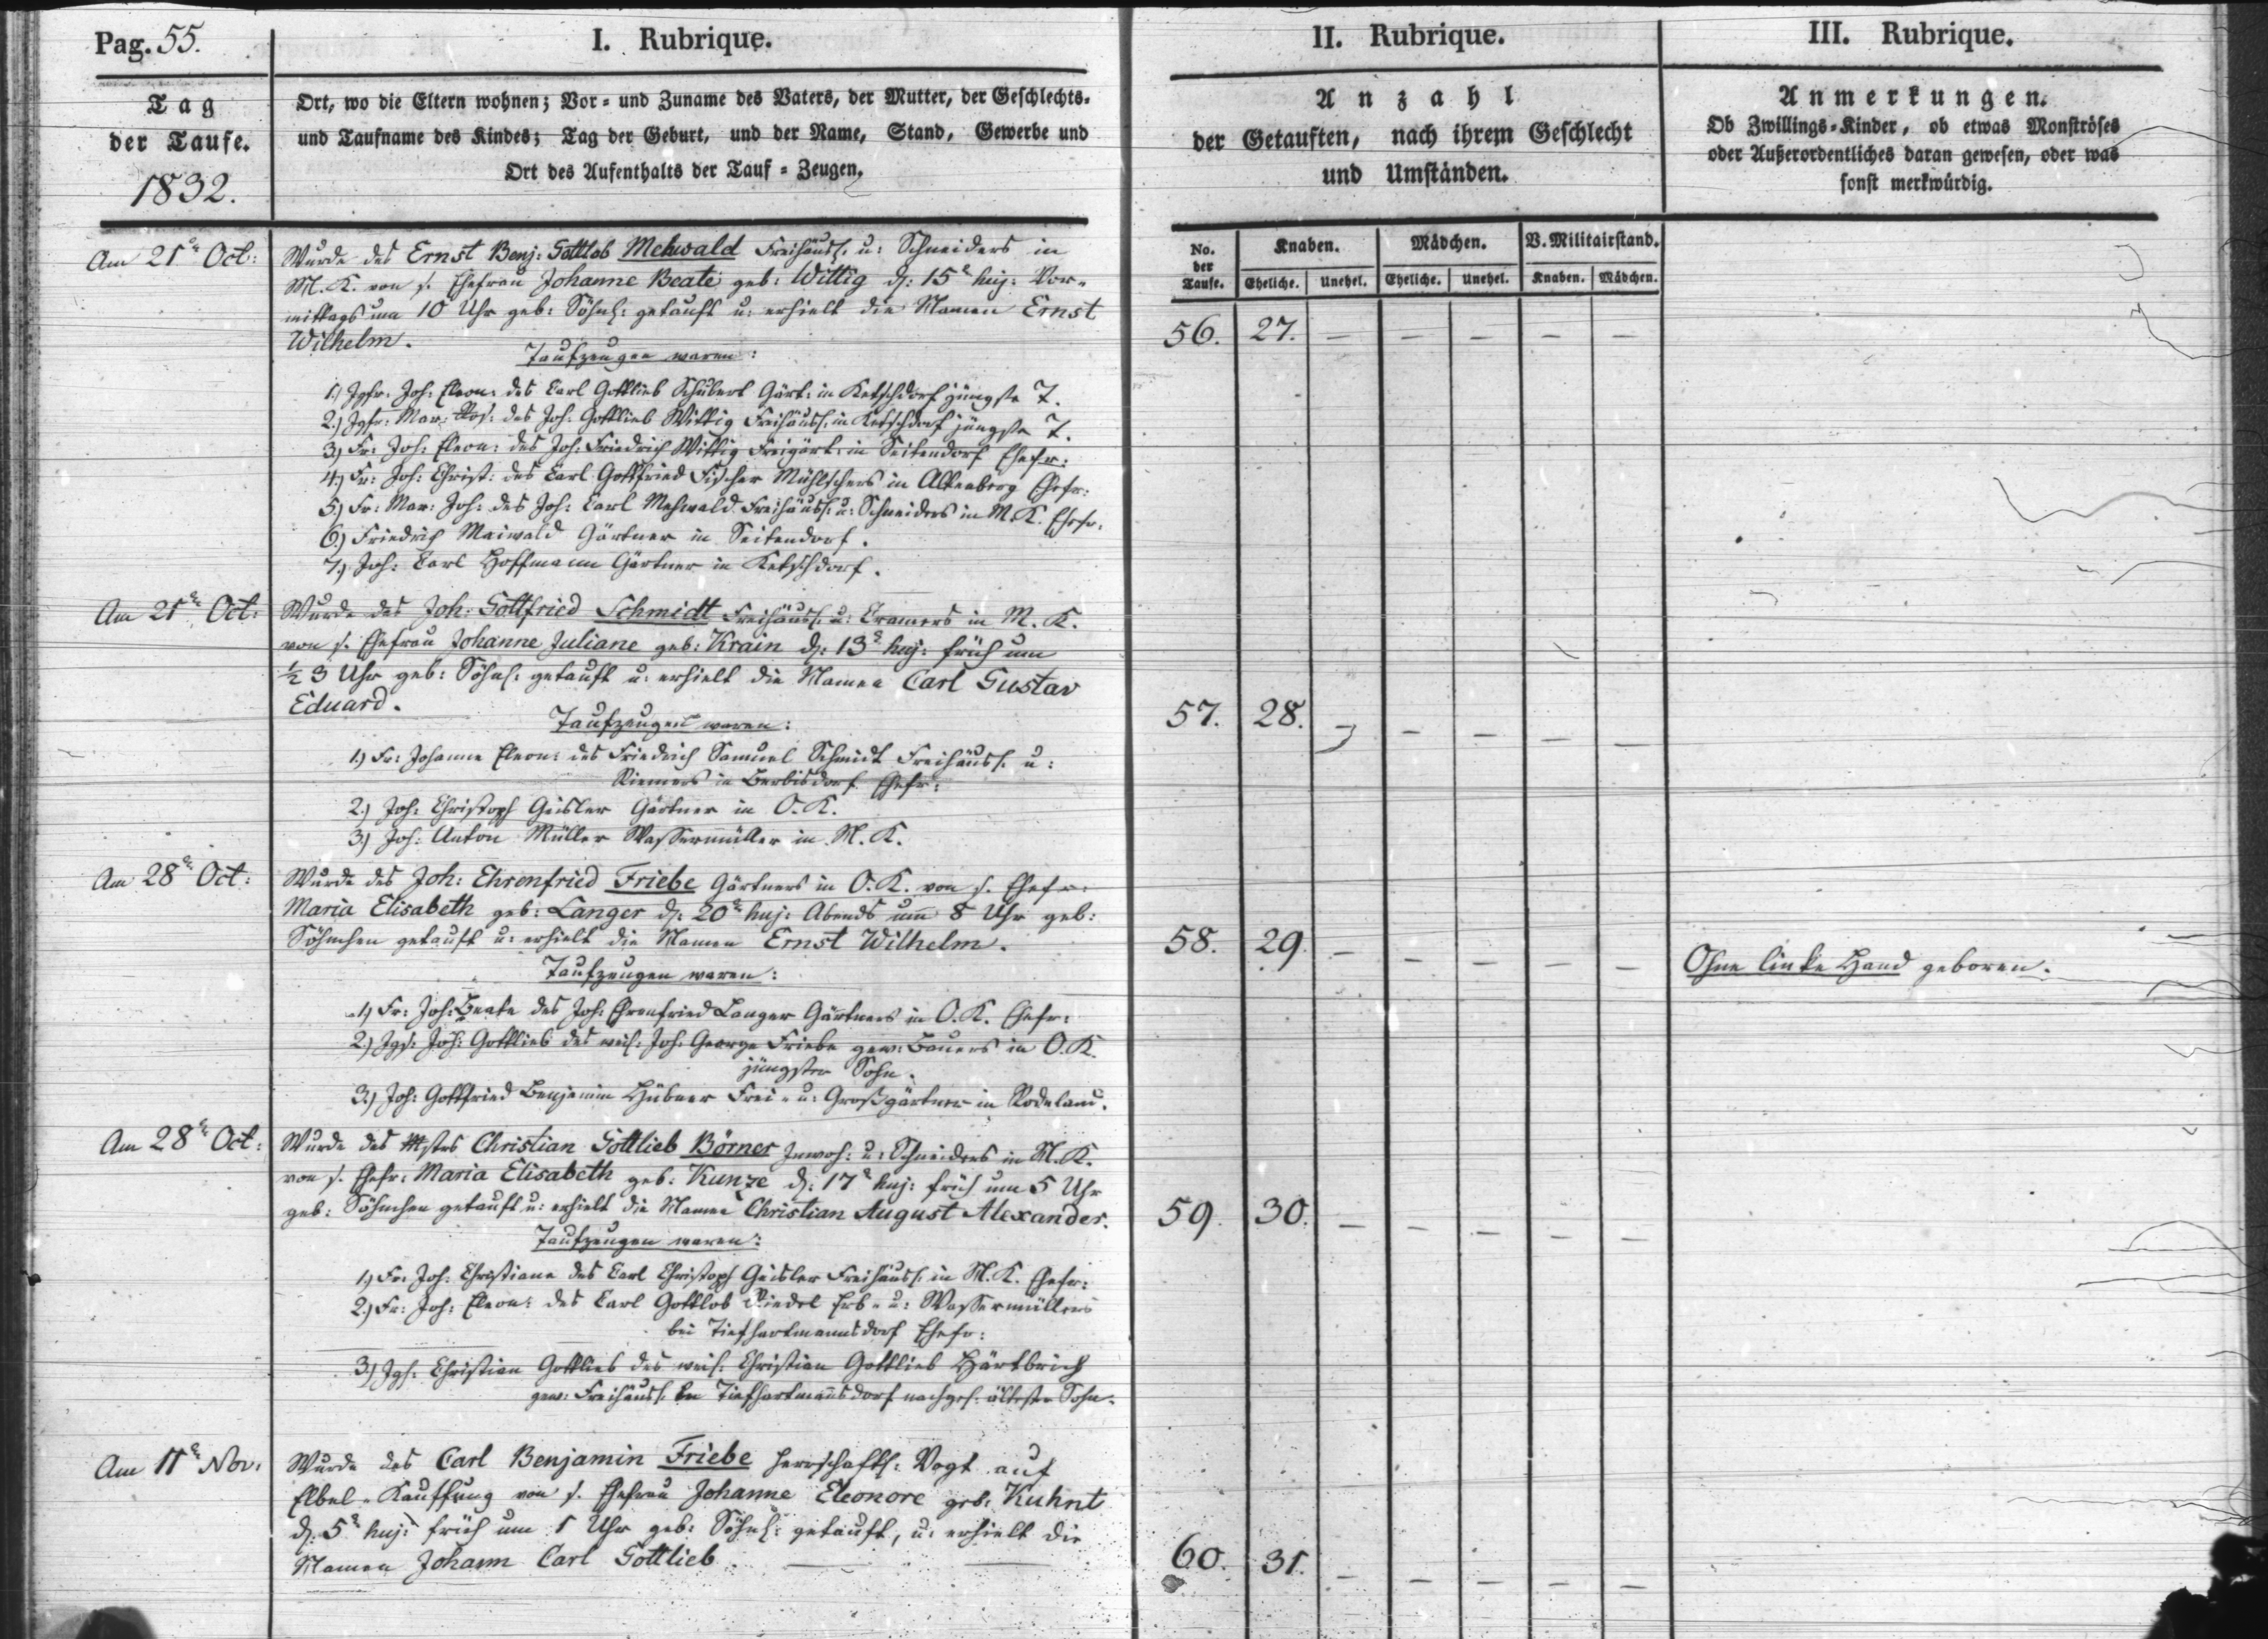 Pag. 55.
I. Rubrique.
II. Rubrique.
III. Rubrique.
Tag
der Taufe.
1832.
Ort, wo die Eltern wohnen; Vor- und Zuname des Vaters, der Mutter, der Geschlechts-
und Taufname des Kindes; Tag der Geburt, und der Name, Stand, Gewerbe und
Ort des Aufenthalts der Tauf-Zeugen.
Anzahl
der Getauften, nach ihrem Geschlecht
und Umständen.
Anmerkungen.
Ob Zwillings-Kinder, ob etwas Monströses
oder Außerordentliches daran gewesen, oder was
sonst merkwürdig.
No. der Taufe.
Knaben.
Mädchen.
V. Militairstand.
Eheliche. Unehel. Eheliche. Unehel. Knaben. Mädchen.
Am 21. Oct:
Wurde des Ernst Benj: Gottlob Mehwald Freihäusl. u: Schneiders in
M. K. von s. Ehefrau Johanne Beate geb: Wittig d: 15 huj: Vor-
mittags um 10 Uhr geb: Söhnl: getauft u: erhielt die Namen Ernst
Wilhelm.
56. 27. — — — — —
Taufzeugen waren:
1.) Jgfr. Joh: Eleon: des Carl Gottlieb Schubert Gärt: in Ketschdorf jüngste T.
2.) Jgfr: Mar: Ros: des Joh: Gottlieb Wittig Freihäusl. in Ketschdorf jüngste T.
3.) Fr: Joh: Eleon: des Joh: Friedrich Wittig Freigärt: in Seitendorf Ehefr:
4.) Fr: Joh: Christ: des Carl Gottfried Fischer in Altenberg Ehefr:
5.) Fr: Mar: Joh: des Joh: Carl Mehwald Freihäusl. u: Schneiders in M. K. Ehefr.
6.) Friedrich Maiwald Gärtner in Seitendorf.
7.) Joh: Carl Hoffmann Gärtner in Ketschdorf.
Am 21. Oct:
Wurde des Joh: Gottfried Schmidt Freihäusl. u: Cramers in M. K.
von s. Ehefrau Johanne Juliane geb: Krain d: 13 huj: früh um
½ 3 Uhr geb: Söhnl: getauft u: erhielt die Namen Carl Gustav
Eduard.
57. 28. — — — — —
Taufzeugen waren:
1.) Fr: Johanne Eleon: des Friedrich Samuel Schmidt Freihäusl. u:
Riemers in Berbisdorf Ehefr:
2.) Joh: Christoph Geisler Gärtner in O. K.
3.) Joh: Anton Müller Wassermüller in M. K.
Am 28. Oct:
Wurde des Joh: Ehrenfried Friebe Gärtners in O. K. von s. Ehefr:
Maria Elisabeth geb: Langer d: 20 huj: Abends um 8 Uhr geb:
Söhnchen getauft u: erhielt die Namen Ernst Wilhelm.
58. 29. — — — — —
Ohne linke Hand geboren.
Taufzeugen waren:
1.) Fr: Joh: Beate des Joh: Ehrenfried Langer Gärtners in O. K. Ehefr:
2.) Jgs: Joh: Gottlieb des weil: Joh: George Friebe gew: Bauers in O. K.
jüngster Sohn.
3.) Joh: Gottfried Benjamin Hübner Frei- u: Großgärtner in Rodeland.
Am 28. Oct:
Wurde des Mstrs Christian Gottlieb Börner Inwoh: u: Schneiders in M. K.
von s. Ehefr: Maria Elisabeth geb: Kunze d: 17 huj: früh um 5 Uhr
geb: Söhnchen getauft u: erhielt die Namen Christian August Alexander.
59. 30. — — — — —
Taufzeugen waren:
1.) Fr: Joh: Christiane des Carl Christoph Geisler Freihäusl. in M. K. Ehefr:
2.) Fr: Joh: Eleon: des Carl Gottlob Riedel Erb- u: Wassermüllers
bei Tiefhartmannsdorf Ehefr:
3.) Jgs: Christian Gottlieb des weil: Christian Gottlieb
gew: Freihäusl. in Tiefhartmansdorf nachgel. ältester Sohn.
Am 11. Nov:
Wurde des Carl Benjamin Friebe herrschaftl: Vogt auf
Elbel-Kauffung von s. Ehefrau Johanne Eleonore geb: Kuhnt
d: 5 huj: früh um 1 Uhr geb: Söhnl: getauft, u: erhielt die
Namen Johann Carl Gottlieb.
60. 31. — — — — —